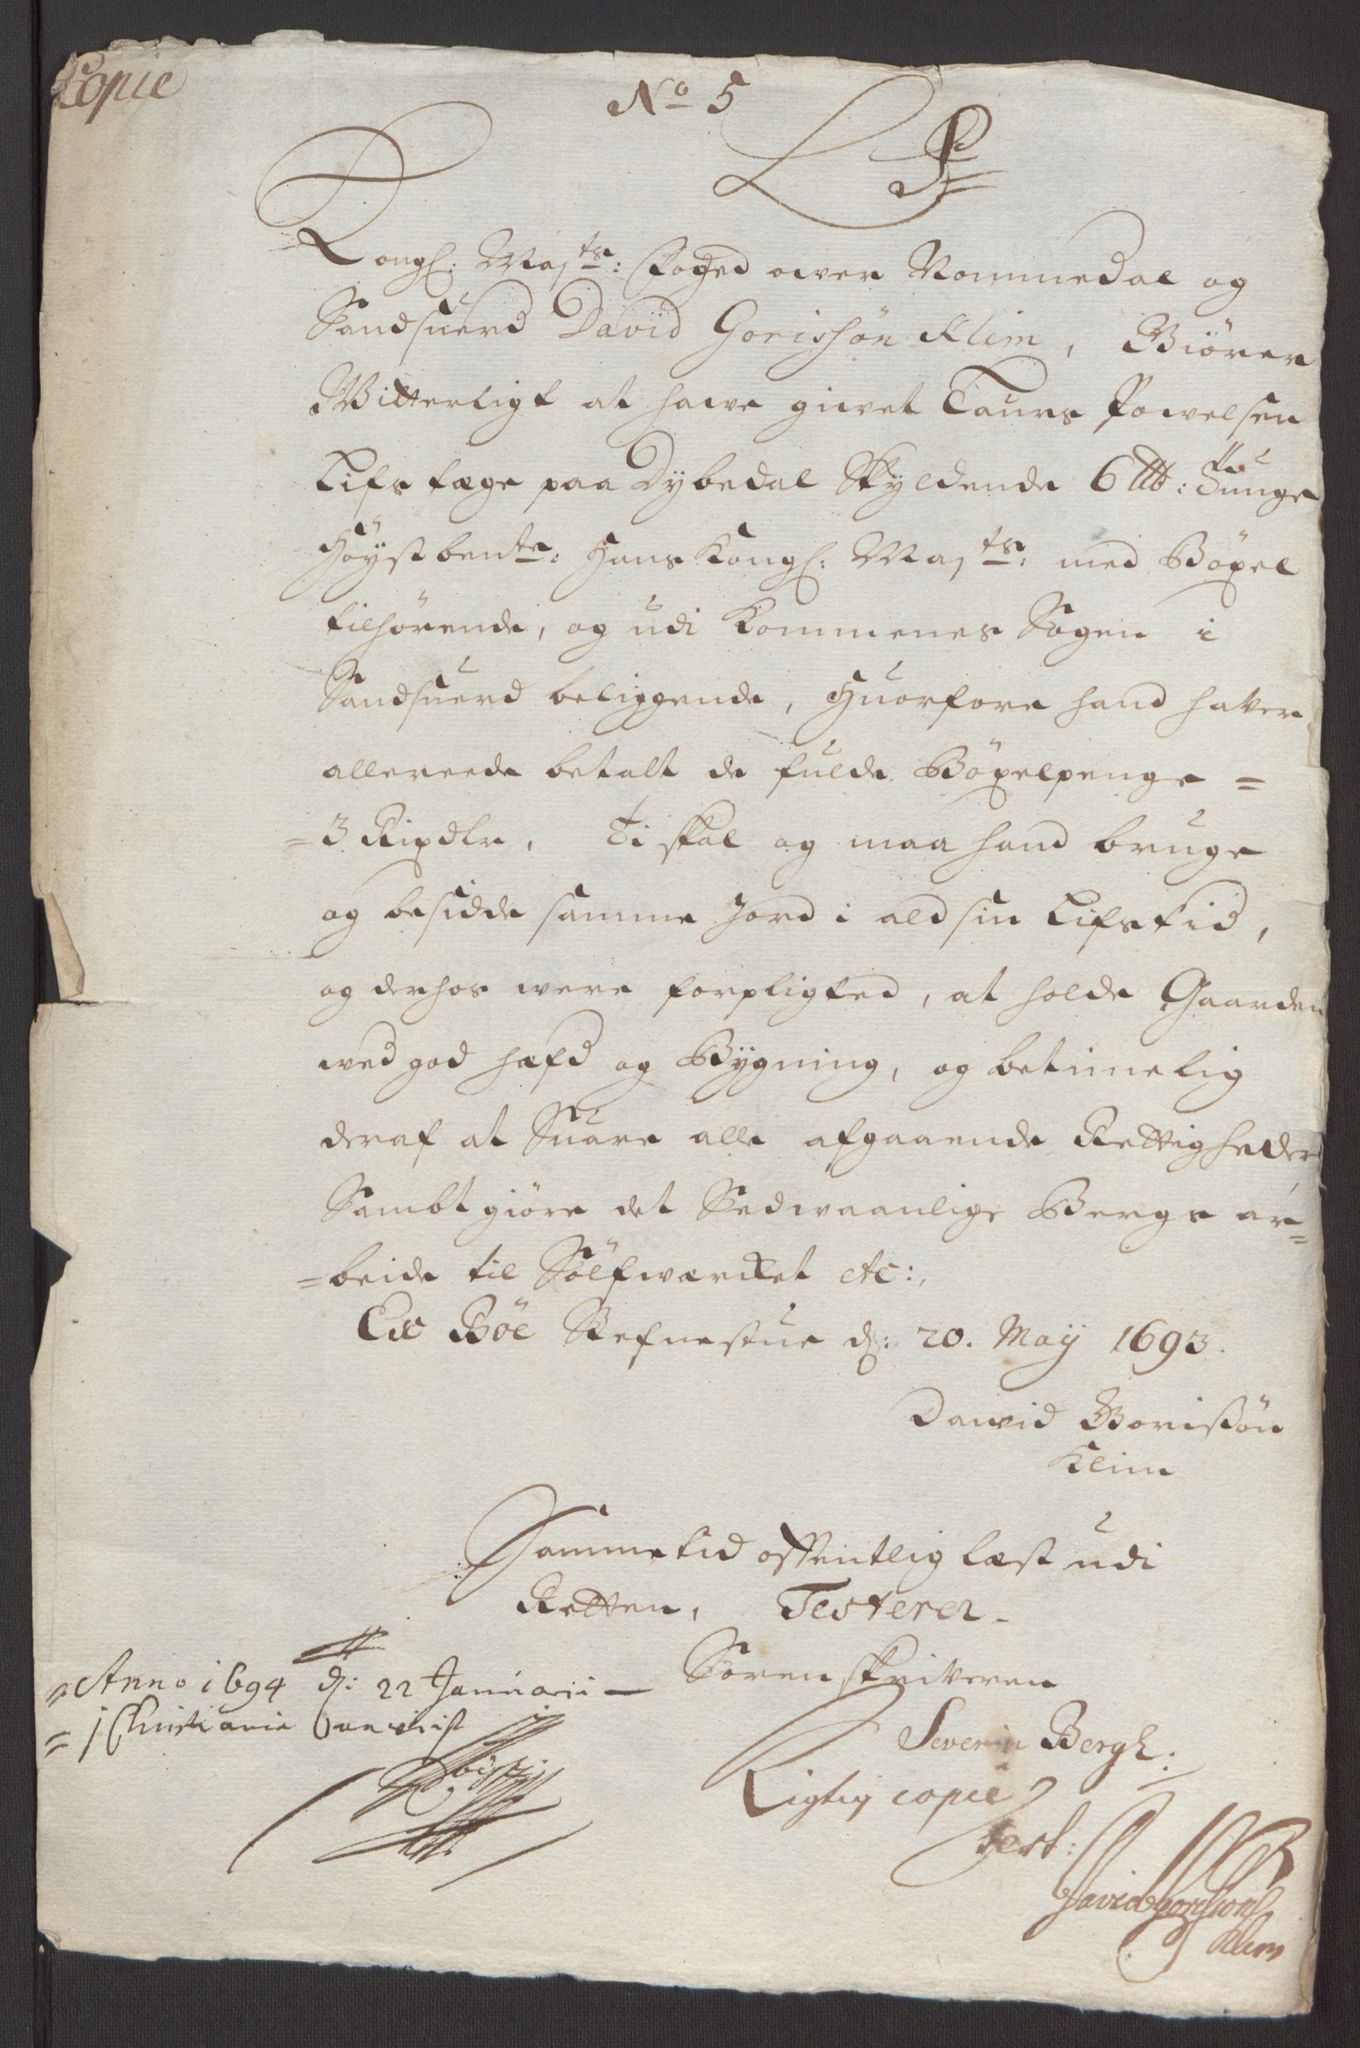 Copie
No 5
Kongl: Mayts: Foged over Nommedal og
Sandsuerd David Gorissøn Klim, Giörer
Witterligt at hawe giwet Laurs Powelsen
Lifs fæge paa Dybedal Skyldende 6 Lb: Tunge
Höystbente: Hans Kongl: Mayts: med Böxel
tilhörende, og udi Kommenes Sogen i
Sandsuerd beliggende, Huorfore hand haver
allereede betalt de fulde Böxelpenge =
= 3 Rixdlr, Ti skal og maa hand bruge
og besidde samme Jord i ald sin Lifs tid,
og derhos were forpligted, at holde Gaarden
wed god hæfd og Bygning, og betimelig
deraf at Suare alle afgaaende Rettigheder
Sambt giöre det Sedwaanlige Bergs ar=
=beide til Sölfwærcket etc:
Ex Böe Stefnestue d: 20. Maÿ 1693.
Dawid Gorissön
Klim
Samme tid offentlig læst udi
Retten, Testerer
Sorenskriveren
Severin Bergh:
= Anno 1694 d: 22 Januarii
= j Christiania
Rigtig copie
test:
David Gorisson
Klim